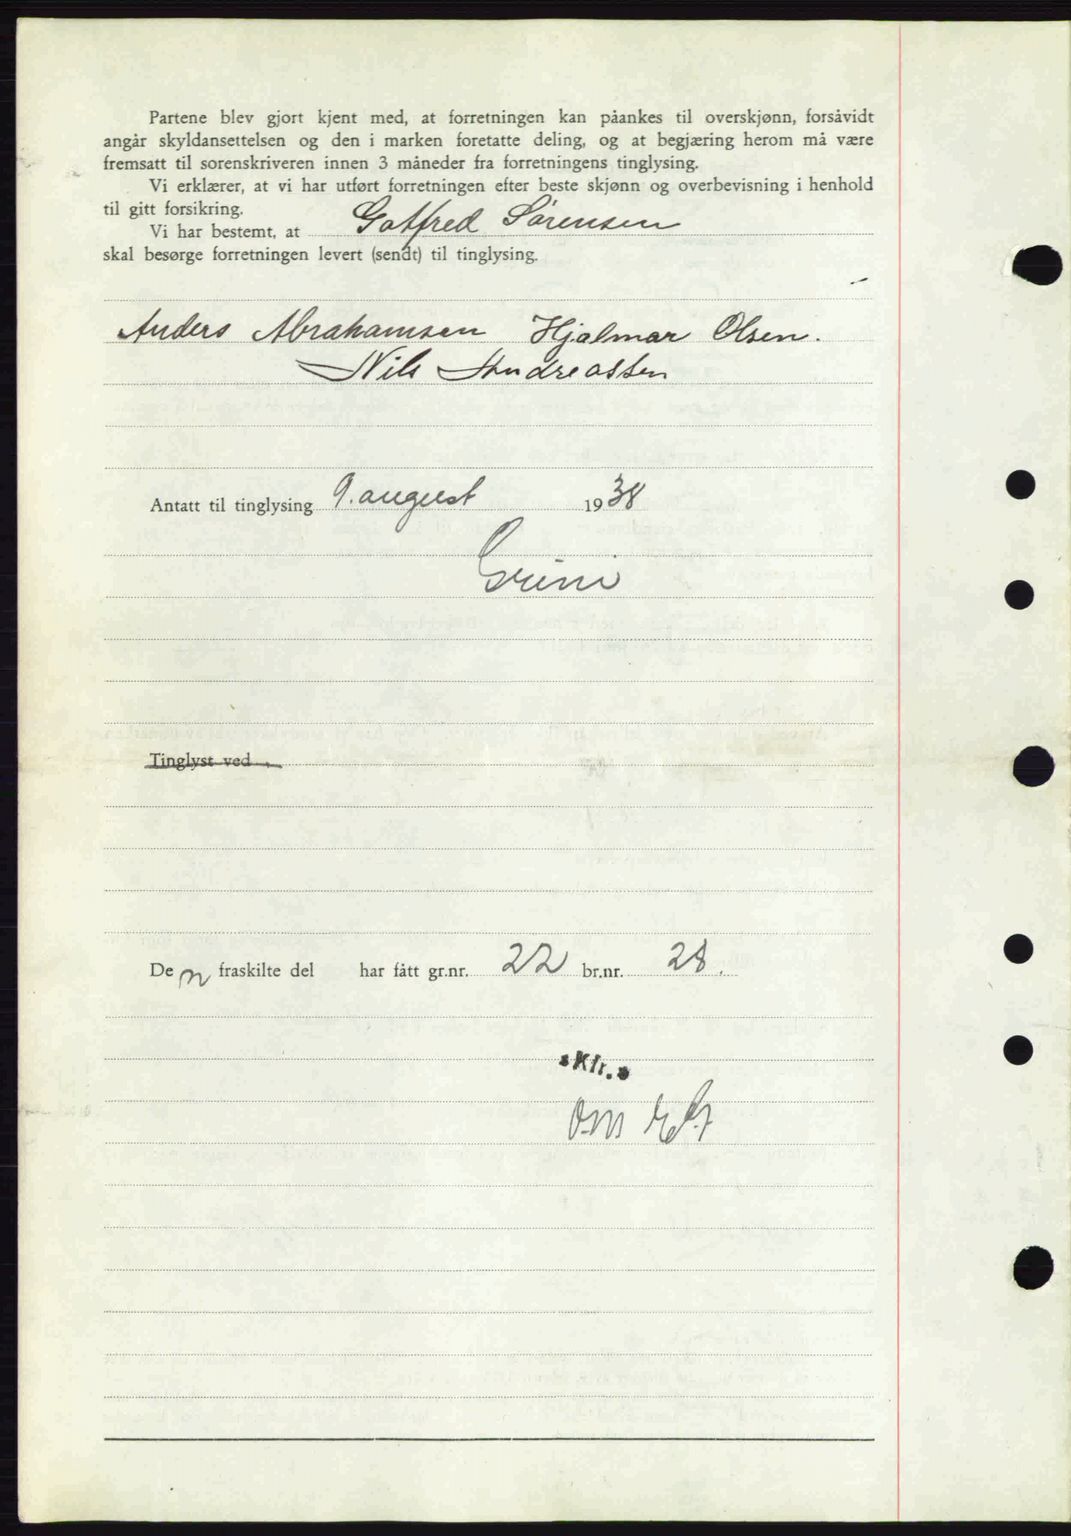 Partene blev gjort kjent med, at forretningen kan påankes til overskjønn, forsåvidt
angår skyldansettelsen og den i marken foretatte deling, og at begjæring herom må være
fremsatt til sorenskriveren innen 3 måneder fra forretningens tinglysing.
Vi erklærer, at vi har utført forretningen efter beste skjønn og overbevisning i henhold
til gitt forsikring.
Vi har bestemt, at Gotfred Sørensen
skal besørge forretningen levert (sendt) til tinglysing.
Anders Abrahamsen Hjalmar Olsen.
Nils Andreassen
Antatt til tinglysing 9. august 1938
Grini
Tinglyst ved
Den fraskilte del har fått gr.nr. 22 br.nr. 28.
Kfr.